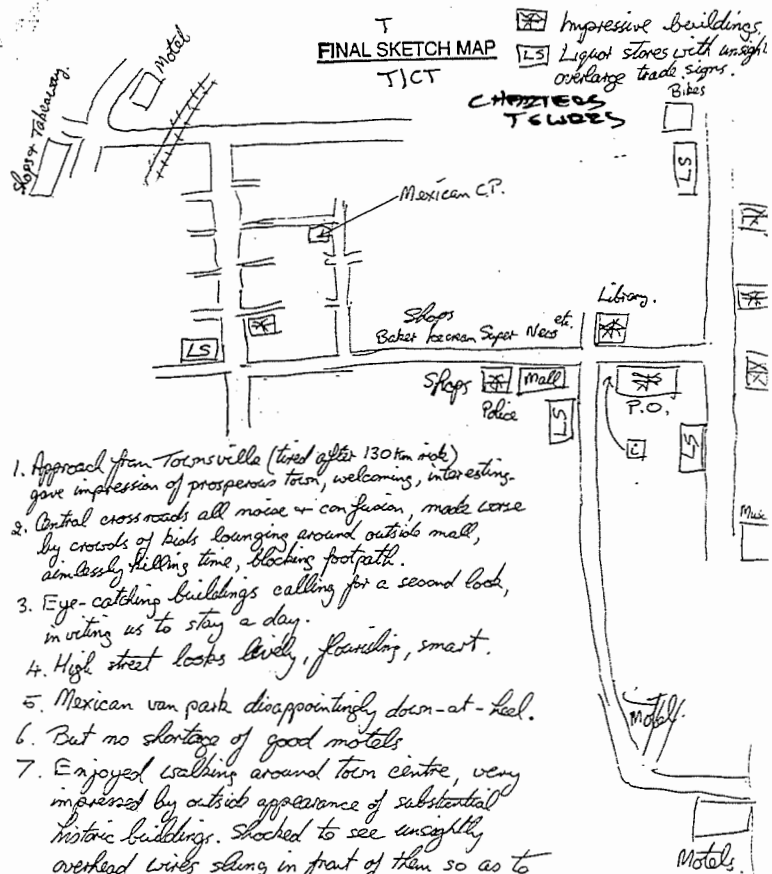 T
FINAL SKETCH MAP
T/CT
CHARTERS
TOWERS
Impressive buildings.
LS Liquor stores with
overlarge trade signs.
Bikes
Motel
Shops & Takeaway
LS
Mexican C.P.
Library.
Shops
Baker Icecream Super News etc.
LS
Shops
Mall
Police
P.O.
LS
i
LS
1. Approach from Townsville (tired after 130 Km ride)
gave impression of prosperous town, welcoming, interesting.
2. Central crossroads all noise & confusion, made worse
by crowds of kids lounging around outside mall,
aimlessly killing time, blocking footpath.
3. Eye-catching buildings calling for a second look,
inviting us to stay a day.
4. High street looks lively, flourishing, smart.
5. Mexican van park disappointingly down-at-heel.
6. But no shortage of good motels
7. Enjoyed walking around town centre, very
impressed by outside appearance of substantial
historic buildings. Shocked to see unsightly
overhead wires slung in front of them so as to
Motel.
Motels.